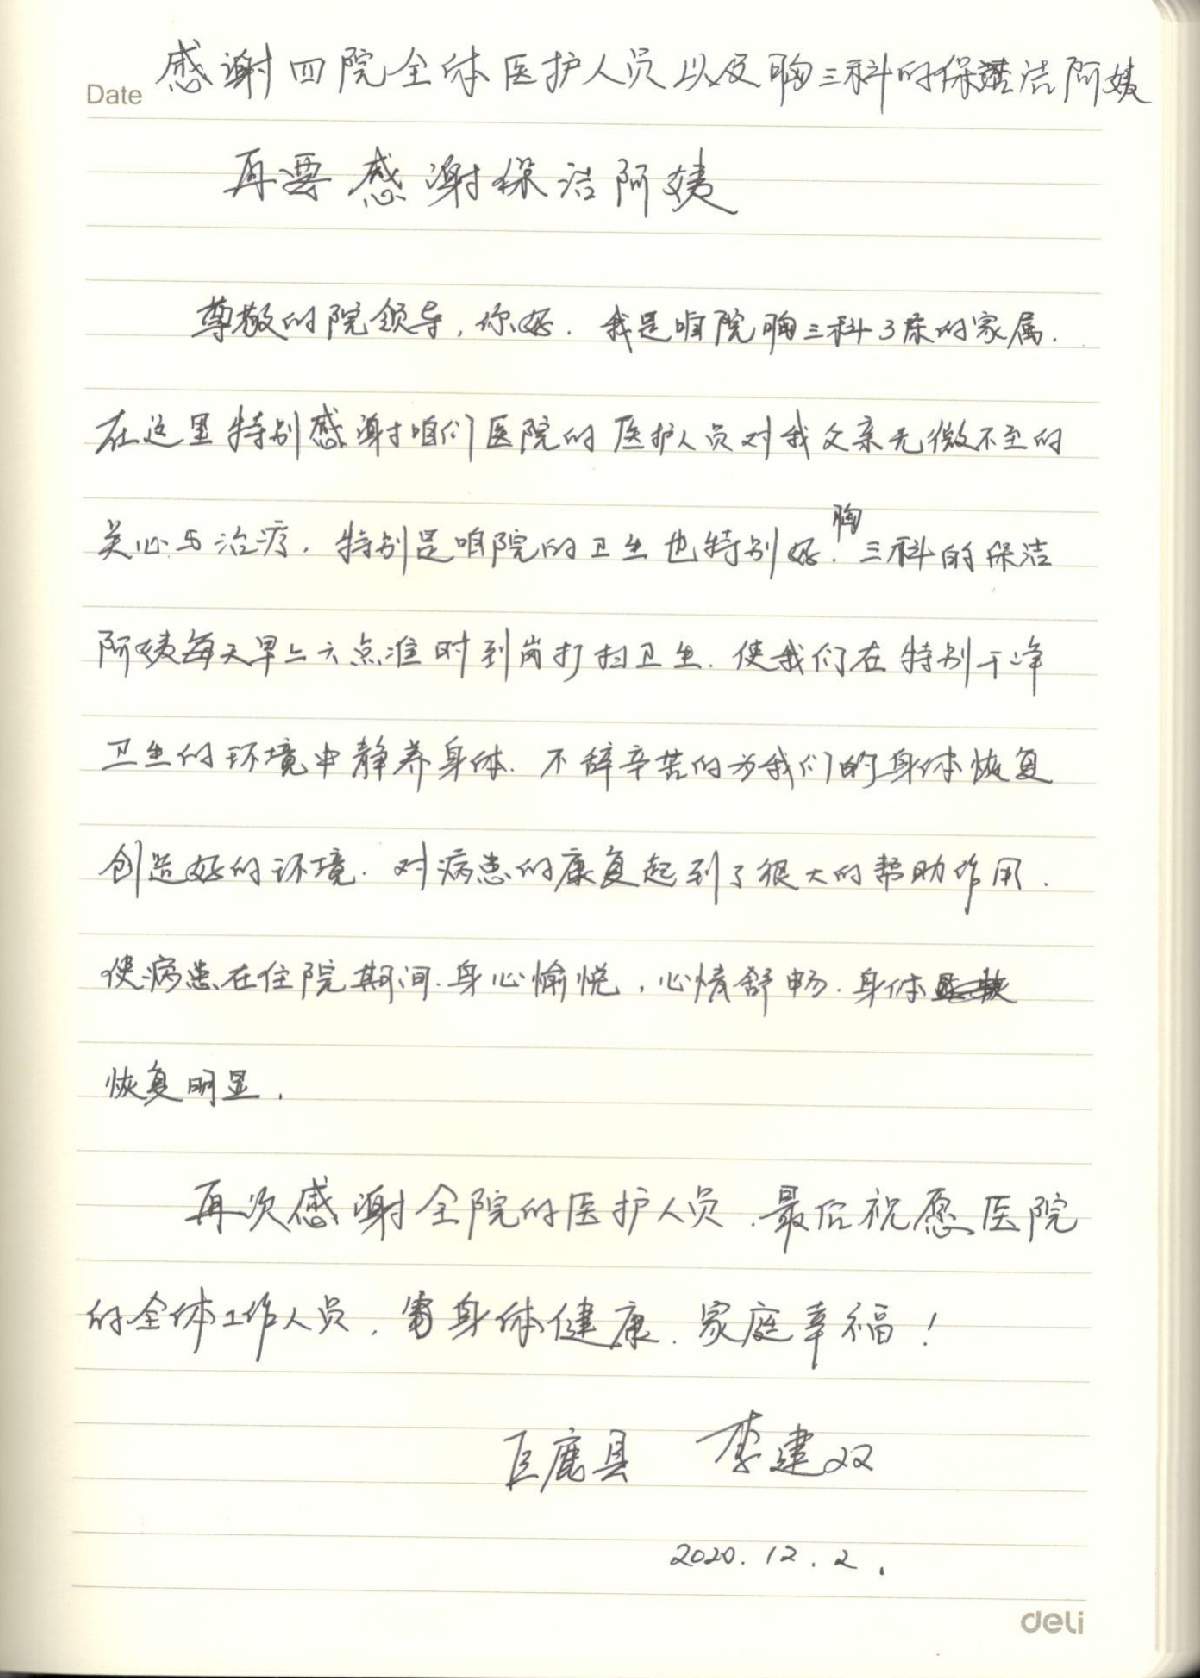 Date
感谢四院全体医护人员以及胸三科的保洁阿姨
再要感谢保洁阿姨
尊敬的院领导,你好.我是咱院胸三科3床的家属.
在这里特别感谢咱们医院的医护人员对我父亲无微不至的
关心与治疗.特别是咱院的卫生也特别好.胸三科的保洁
阿姨每天早上六点准时到岗打扫卫生.使我们在特别干净
卫生的环境中静养身体.不辞辛苦的为我们的身体恢复
创造好的环境.对病患的康复起到了很大的帮助作用.
使病患在住院期间.身心愉悦,心情舒畅.身体
恢复明显.
再次感谢全院的医护人员.最后祝愿医院
的全体工作人员,身体健康.家庭幸福!
巨鹿县 李建双
2020.12.2.
deli